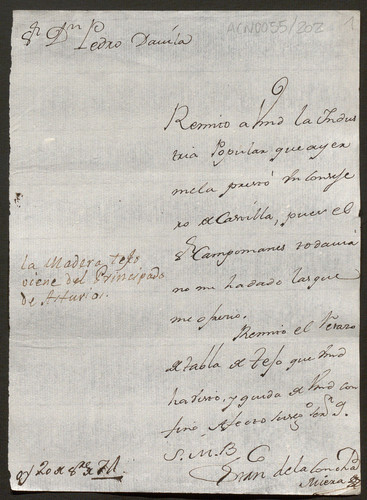 ACN0055/202
1
Sr. Dn. Pedro Davila
Remito a Vmd la Indus
tria Popular que ayer
me la prestó Un Conseje
ro de Castilla, pues el
Sr. Campomanes todavia
no me ha dado las que
me ofrecio.
Remito el Pedazo
de tabla de Tejo que Vmd
ha visto, y queda de Vmd con
fino Afecto
S. M. B.
Juan de la Concha
Miera
la Madera tejo
viene del Principado
de Asturias.
oy 20 de 71